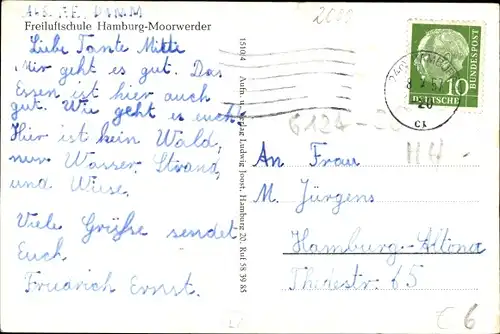 Freiluftschule Hamburg-Moorwerder
Liebe Tante Mitti
Mir geht es gut. Das
Essen ist hier auch
gut. Wie geht es euch?
Hier ist kein Wald,
nur Wasser, Strand,
und Wiese.
Viele Grüße sendet
Euch
Friedrich Ernst.
1510/4 Aufn. u. Verlag Ludwig Joost, Hamburg 20, Ruf 58 39 85
DEUTSCHE
BUNDESPOST
10
An Frau
M. Jürgens
Hamburg-Altona
Thedestr. 65